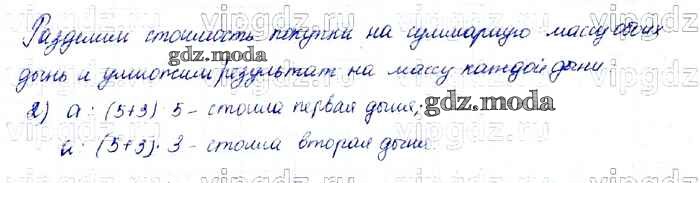 Разделим стоимость покупки на суммарную массу обеих
дынь и умножим результат на массу каждой дыни.
2) a : (5+3) · 5 - стоила первая дыня;
a : (5+3) · 3 - стоила вторая дыня.
gdz.moda
gdz.moda
vipgdz
vipgdz
vipgdz